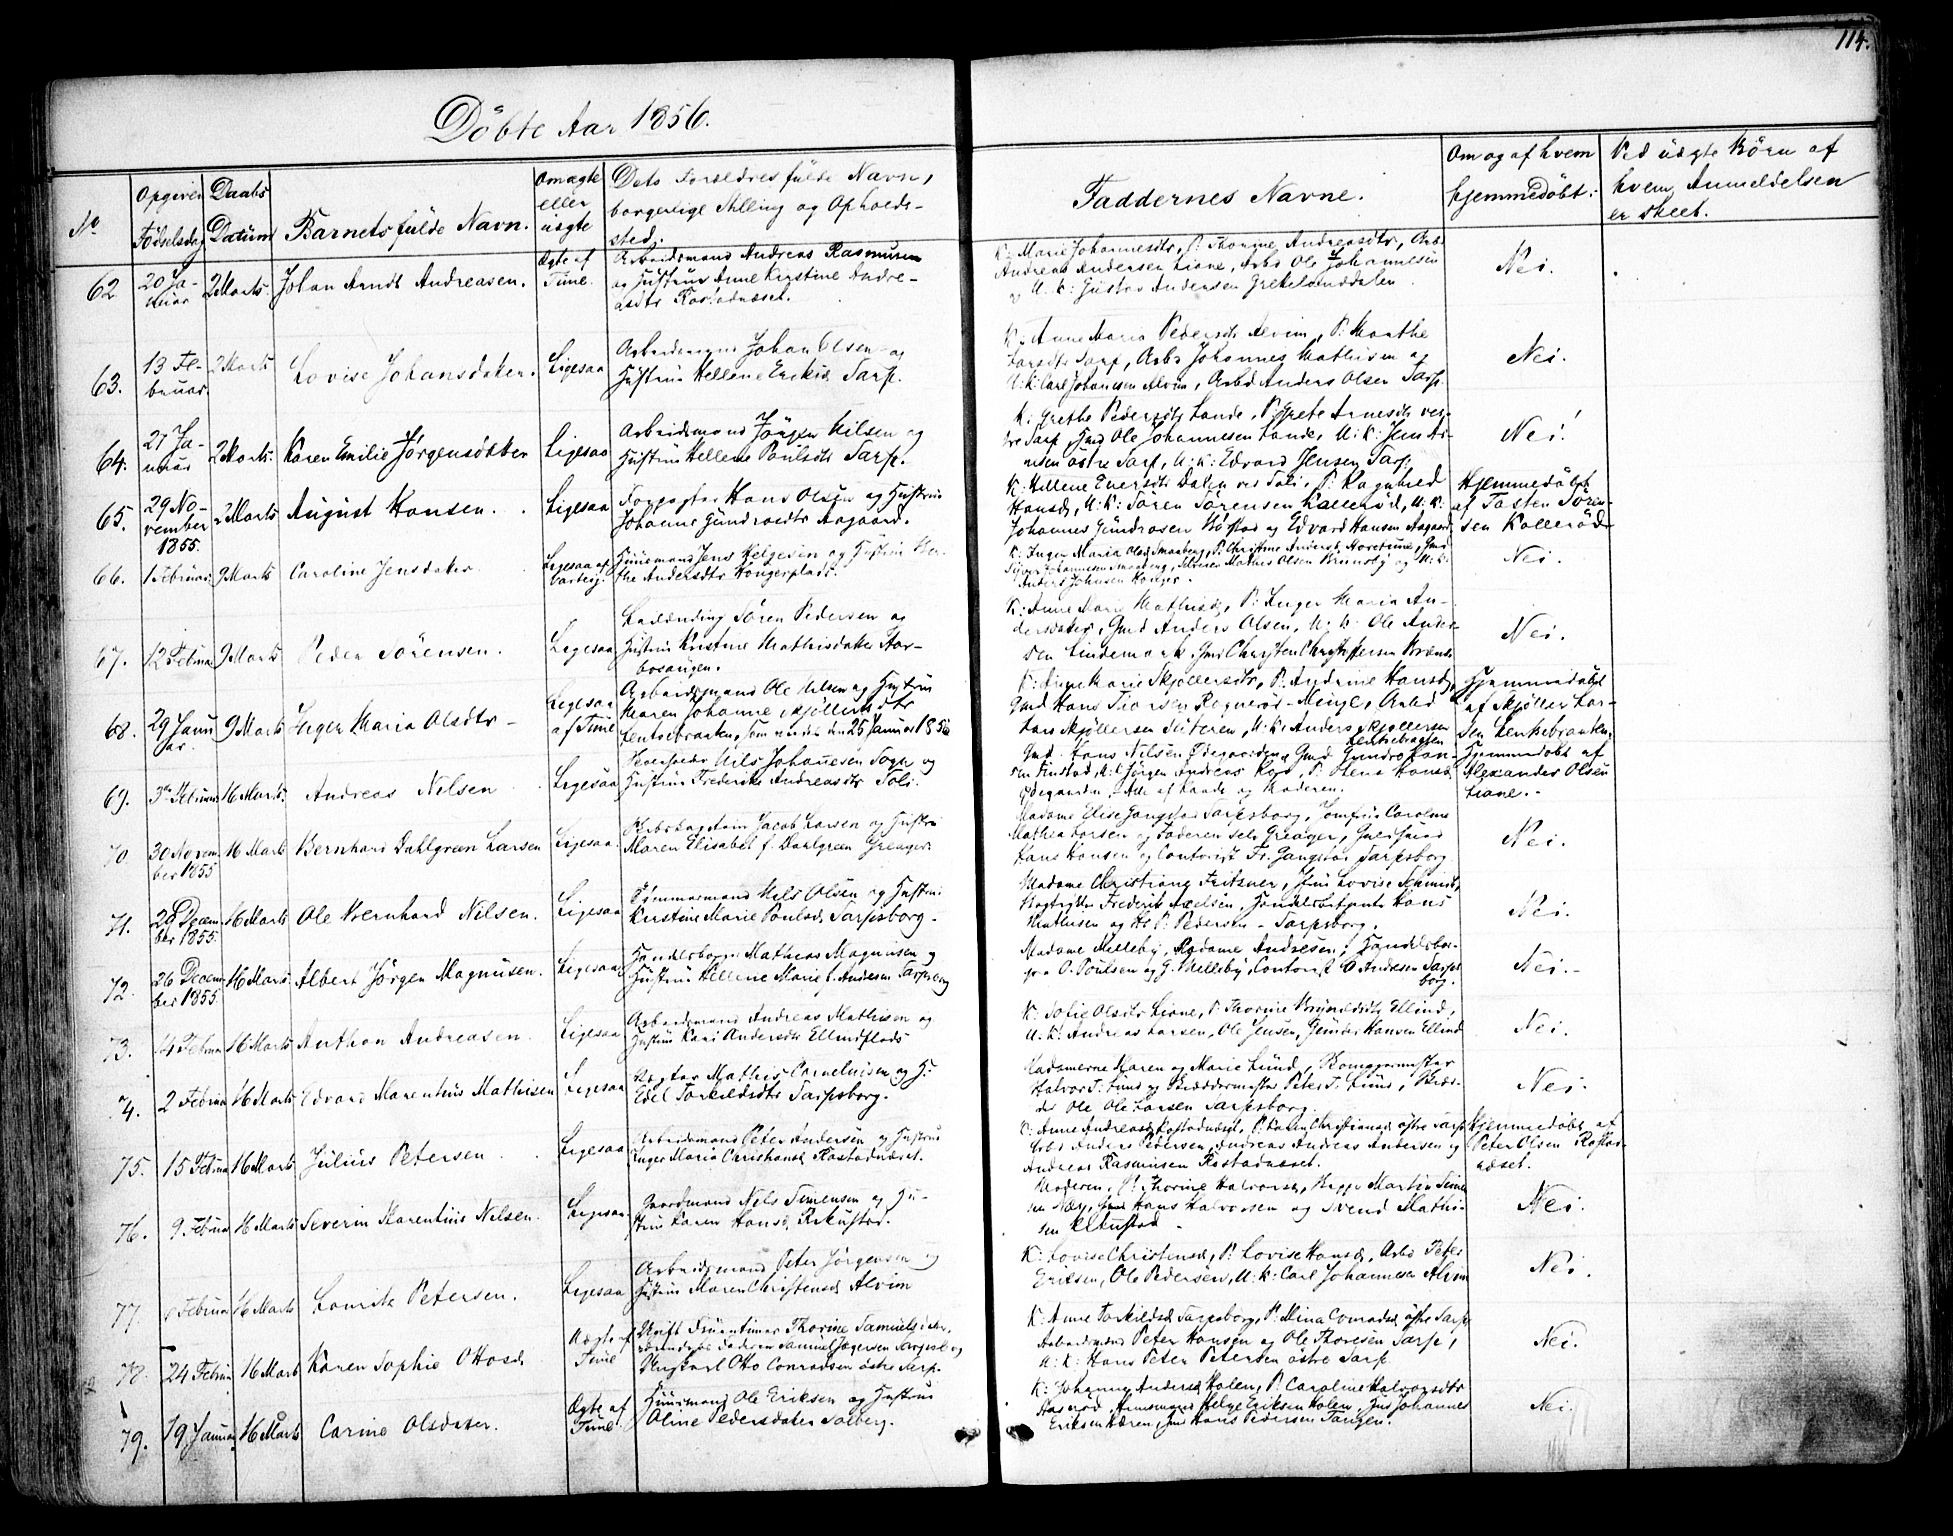 114.
Döbte Aar 1856.
No
Opgiven Födselsdag
Daabs Datum
Barnets fulde Navn.
Om ægte eller uægte
Dets Forældres fulde Navn, borgerlige Stilling og Opholdssted.
Faddernes Navne.
Om og af hvem hjemmedöbt:
Ved uægte Börn af hvem Anmeldelsen er skeet.
62 20 Januar 2 Marts Johan Arndt Andreasen. Ægte af Tune.
Arbeidsmand Andreas Rasmusen
og Hustrue Anne Kirstine Andre-
asdtr Rostadnæset.
K: Marie Johannesdtr, P: Thorine Andreasdtr, Arb:
Andreas Andersen Liane, Arbd Ole Johannesen
og U. K: Gustav Andersen
Nei.
63. 13 Februar. 2 Marts Lovise Johansdatter. Ligesaa
Arbeidsmand Johan Olsen og
Hustrue Hellene Eriksd. Sarp.
K: Anne Maria Pedersdtr Alvim, P: Marthe
Larsdtr Sarp, Arbd Johannes Mathisen og
U: K: Carl Johannesen Alvim, Arbd Anders Olsen Sarp.
Nei.
64. 27 Januar 2 Marts. Karen Emilie Jörgensdatter Ligesaa
Arbeidsmand Jörgen Nilsen og
Hustrue Hellene Poulsdtr Sarp.
K: Grethe Pedersdtr Lande, P: Grete Arnesdtr ves-
tre Sarp, Gmd Ole Johannesen Lande, U: K: Jens Ar-
nesen östre Sarp, U: K: Edvard Jensen Sarp.
Nei.
65. 29 November 1855. 2 Marts August Hansen. Ligesaa
Forpagter Hans Olsen og Hustrue
Johanne Gundrosdtr Aagaard.
K: Hellene Evensdtr Dalen ved Soli, P: Ragnhild
Hansd, U: K: Sören Sörensen Kalleröd, U: K:
Johannes Gundrosen Böstad og Edvard Hansen Aagaard
Hjemmedöbt
af Tosten Sören-
sen Kalleröd
66. 1 Februar. 9 Marts Caroline Jensdatter. Ligesaa af Varteig.
Huusmand Jens Helgesen og Hustrue Ber-
the Andersdtr Kongerplads.
K: Inger Maria Olsd
Anders Johnsen Konger.
Nei.
67. 12 Februar 9 Marts Peder Sörensen. Ligesaa
Sören Pedersen og
Hustrue Kristine Mathisdatter
K: Anne Marie Mathisd, P: Inger Maria An-
dersdatter, Gmd Anders Olsen, U: K: Ole Ander-
sen Lindemark, Gmd Christen Christoffersen
Nei.
68. 29 Januar 9 Marts Inger Maria Olsdtr Ligesaa af Tune
Arbeidsmand Ole Nilsen og Hustrue
Maren Johanne Skjöllersdtr
Lenkebraaten, som viedes den 25 Januar 1856
K: Anne Marie Skjöllersdtr, P: Andrine Hansd,
Lars Skjöllersen Sliteren, U: K: Anders Skjöllersen
Lenkebraaten
Hjemmedöbt
af Skjöller Lar-
sen Lenkebraaten.
69. 3 Februar 16 Marts. Andreas Nilsen Ligesaa
Nils Johannesen Sogn og
Hustrue Frederikke Andreasdtr Soli.
Gmd. Hans Nilsen Ödegaarden, Gmd Gundro Han-
sen Finstad, U: K: Jörgen Andreas Kord, P: Olena Hansd
Ödegaarden, og Moderen.
Hjemmedöbt af
Alexander Olsen
Liane.
70 30 November 1855 16 Marts Bernhard Dahlgreen Larsen Ligesaa
Jacob Larsen og Hustrue
Maren Elisabet f. Dahlgreen Greager.
Madame Elise Gangstad Sarpsborg, Jomfrue Caroline
Mathea Larsen og Faderen selv Greager,
Hans Hansen og Contorist Fr. Gangstad Sarpsborg
Nei.
71. 28 December 1855. 16 Marts Ole Bernhard Nilsen. Ligesaa
Tömmermand Nils Olsen og Hustrue
Kirstine Marie Poulsd. Sarpsborg.
Madame Christiane Fritzner, Jfru Lovise Schmidt,
Frederik Axelsen, Handelsbetjente Hans
Mathisen og Hs P: Pedersen - Sarpsborg.
Nei.
72. 26 December 1855. 16 Marts. Albert Jörgen Magnusen. Ligesaa
Handelsborger Mathias Magnusen og
Hustrue Hellene Marie f. Andersen Sarpsborg
Madame Melleby, Madame Andresen, Handelsbor-
gere O. Poulsen og G. Melleby, Contorist C Andresen Sarps-
borg.
Nei.
73. 14 Februar 16 Marts Anthon Andreasen. Ligesaa
Arbeidsmand Andreas Mathisen og
Hustrue Kari Andersdtr Ellindplads
K: Sofie Olsdtr Liane, P: Thorine Brynildsdtr Ellind,
U: K: Andreas Larsen, Ole Jensen, Gunder Hansen Ellind
Nei.
74. 2 Februar 16 Marts Edvard Marentius Mathisen Ligesaa
Mathis Corneliusen og H:
Edel Torkildsdtr Sarpsborg.
Madamerne Karen og Marie Lund,
Halvor T: Lund og Bræddermester Peter T. Lund,
Ole Larsen Sarpsborg.
Nei.
75. 15 Februar 16 Marts Julius Petersen Ligesaa
Arbeidsmand Peter Andersen og Hustrue
Inger Maria Christiansd. Rostadnæset.
K: Anne Andreasd Rostadnæset, P: Karen Christiansd östre Sarp
Arbd Anders Pedersen, Andreas Andersen og
Andreas Rasmusen Rostadnæset.
Hjemmedöbt af
Peter Olsen Rostad-
næset.
76. 9. Februar 16 Marts Severin Marentius Nilsen. Ligesaa
Gaardmand Nils Simensen og Hu-
strue Karen Hansd
Moderen, P: Thorine Halvorsd, Martin Simen-
sen Næs, Gmd Hans Halvorsen og Svend Mathi-
sen
Nei.
77. Februar 16 Marts Lauritz Petersen. Ligesaa
Arbeidsmand Peter Jörgensen og
Hustrue Maren Christensd. Alvim
K: Lovise Christensd, P: Lovise Hansd, Arbd Peter
Eriksen, Ole Pedersen, U: K: Carl Johannesen Alvim
Nei.
78. 24 Februar 16 Marts Karen Sophie Ottosd. Uægte af Tune
Ugift Fruentimer Thorine Samuelsdatter,
Faderen Samuel
Ungkarl Otto Conradsen östre Sarp.
K: Anne Torkildsd Sarpsborg, P: Mina Conradsd östre Sarp
Arbeidsmænd Peter Hansen og Ole Thoresen Sarp,
U: K: Hans Peter Petersen östre Sarp
Nei.
79. 19 Januar 16 Marts Carine Olsdatter. Ægte af Tune
Huusmand Ole Eriksen og Hustrue
Oline Pedersdatter Solberg.
K: Johanne Andersd Holen, P: Caroline Halvorsdtr
Helge Eriksen Holen, Gmd Johannes
Eriksen Kæren, Gmd Hans Pedersen Tangen.
Nei.